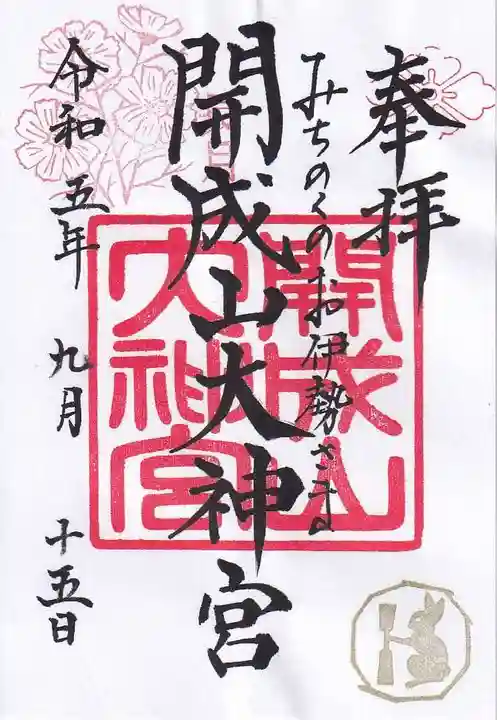 奉拝
みちのくのお伊勢さま
開成山大神宮
令和五年九月十五日
開成山
大神宮